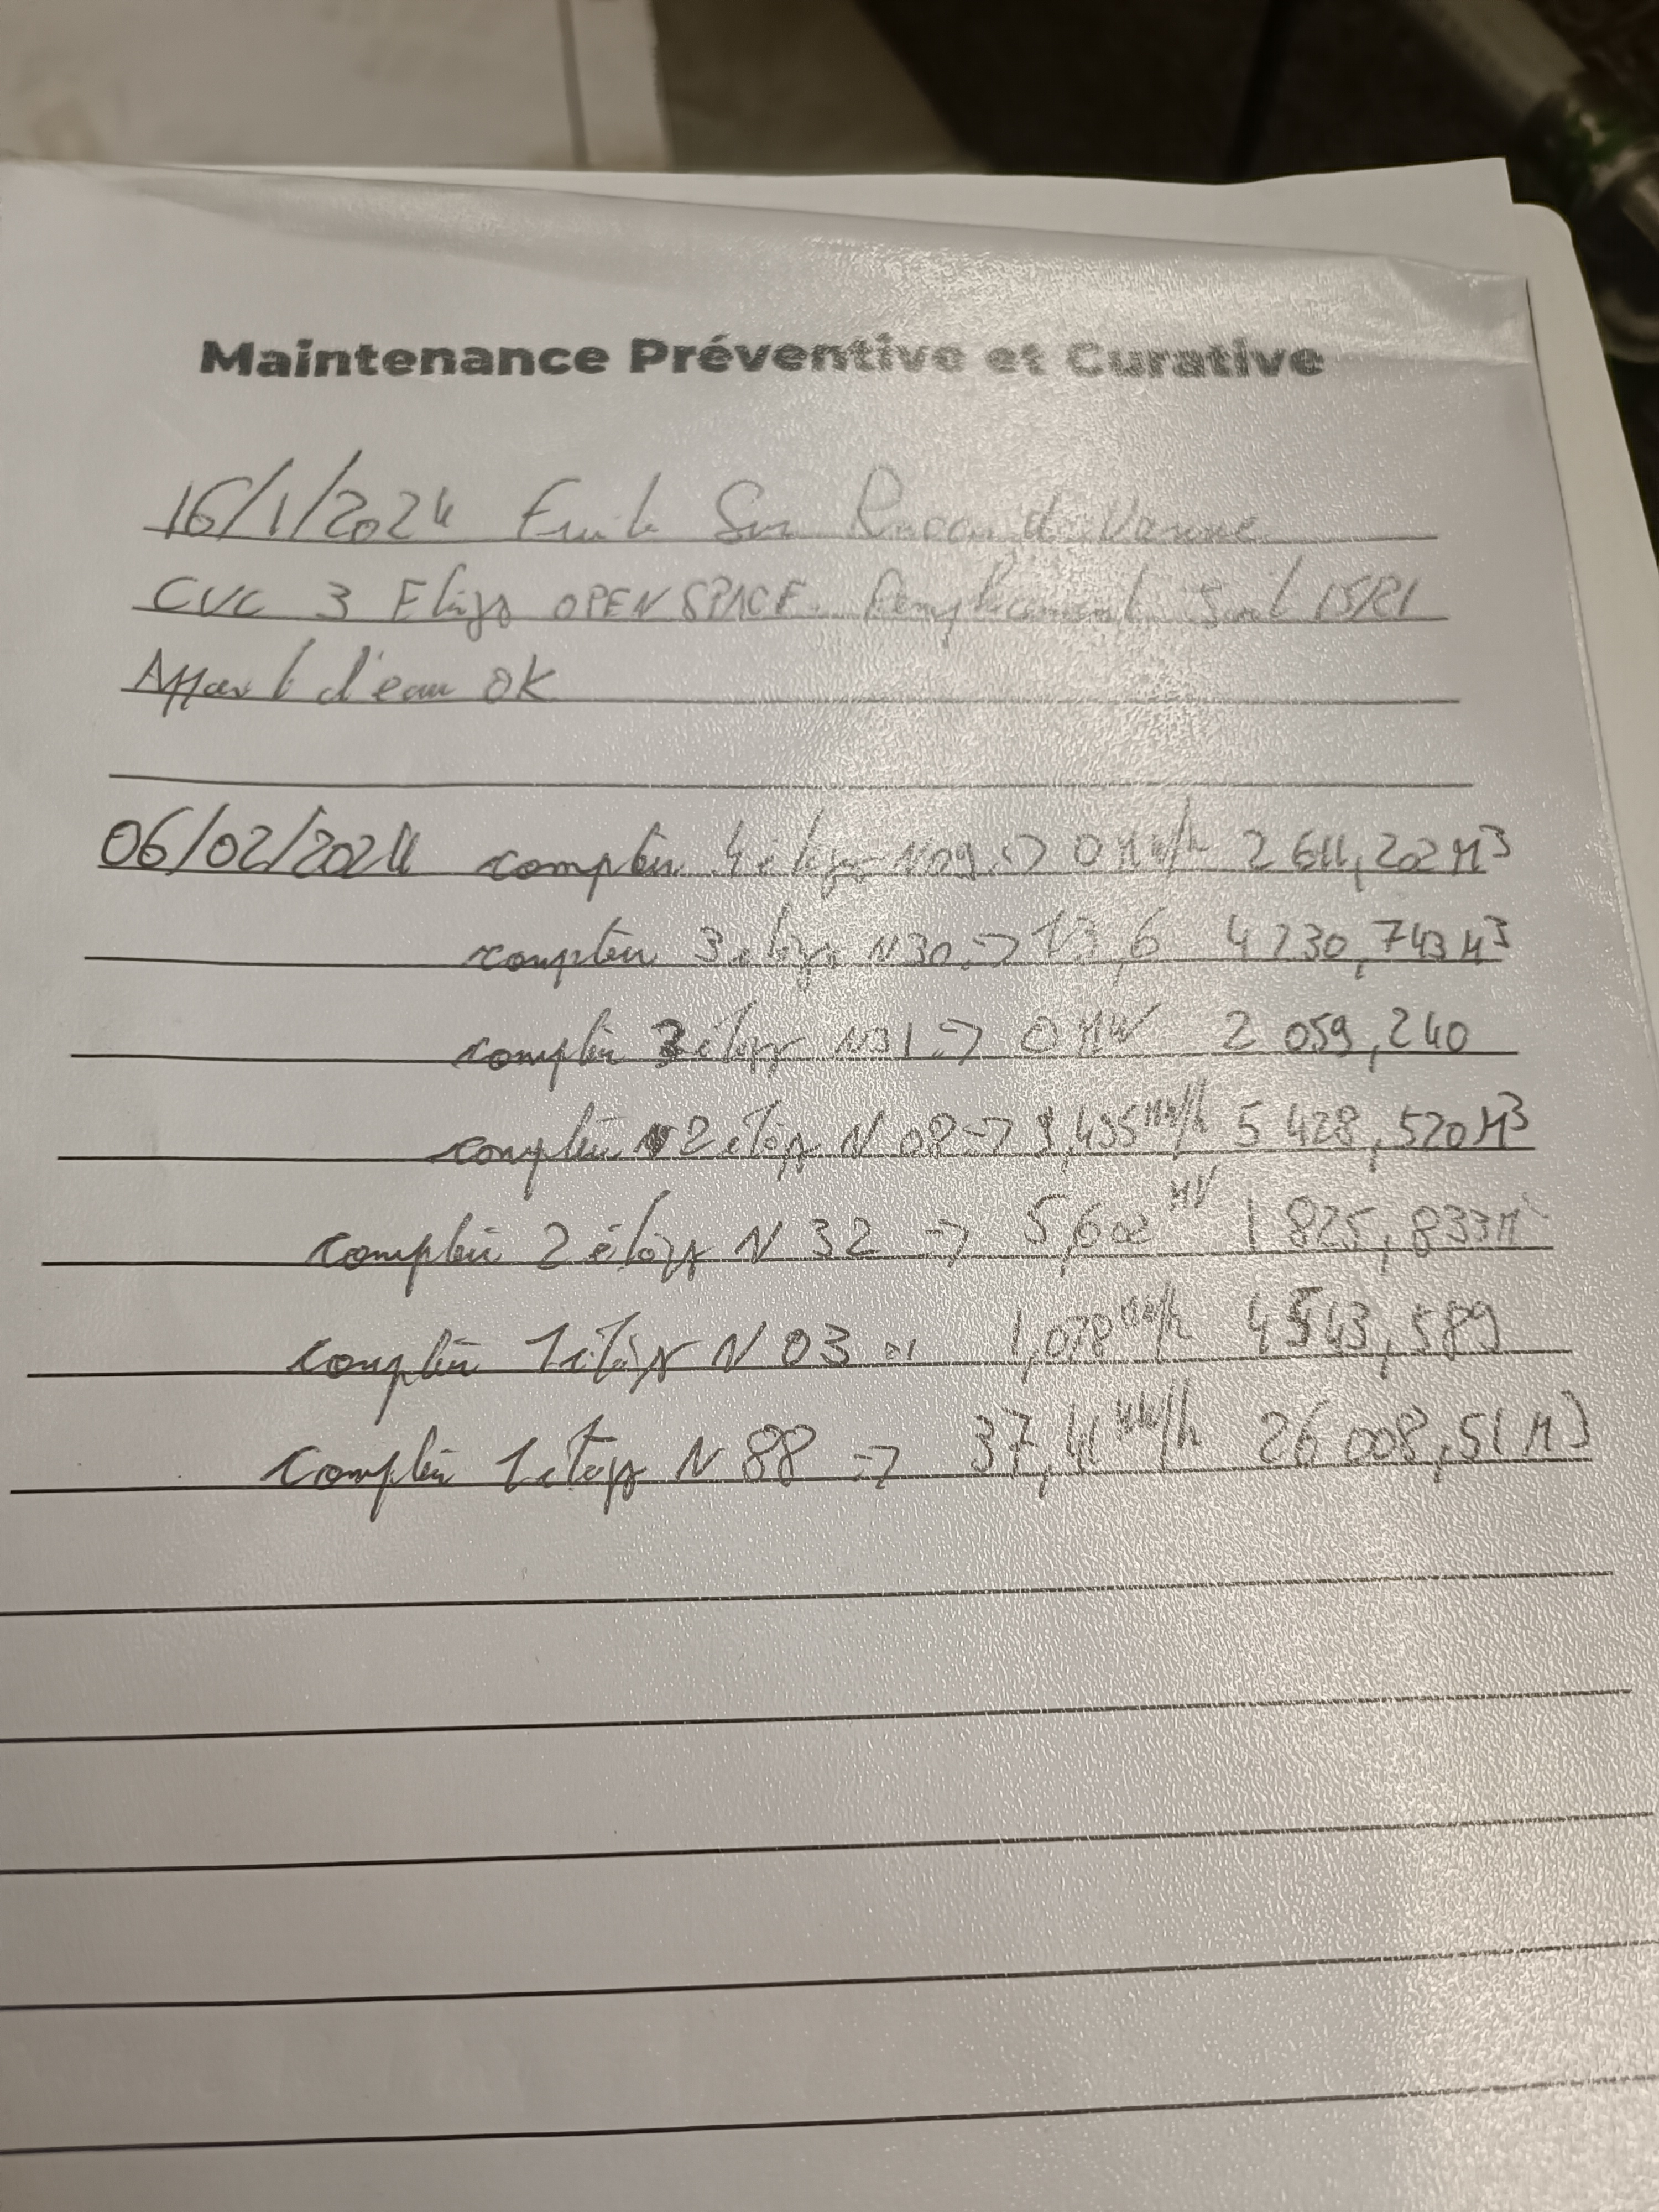 Maintenance Préventive et Curative
16/1/2024 Fuite Sur Raccord Vanne
CVC 3 Etage OPEN SPACE. Remplacement Joint 15/21
Appart d'eau OK
06/02/2024 compteur 4 étage N09 => 0 MW/h 2 611,202 M³
compteur 3 étage N30 => 13,6 4 230,743 M³
compteur 3 étage N31 => 0 MW 2 059,240
compteur 2 étage N 08 => 9,435 MW/h 5 428,520 M³
compteur 2 étage N 32 => 5,602 MW 1 825,833 M³
compteur 1 étage N 03 1,078 MW/h 4543,589
compteur 1 étage N 88 => 37,41 MW/h 26 008,51 M3